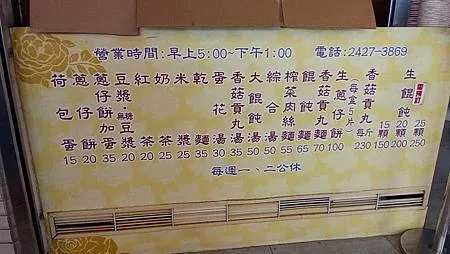 營業時間:早上5:00~下午1:00 電話:2427-3869
荷包蛋 15
蔥仔餅 20
蔥仔餅加蛋 35
豆漿·無糖豆漿 20
紅茶 20
奶茶 25
米漿 25
乾麵 35
蛋花湯 30
香菇貢丸湯 35
大餛飩湯 50
綜合湯 50
榨菜肉絲麵 55
餛飩麵 65
香菇貢丸麵 70
生蔥仔餅(每盒5片) 100
香菇貢丸每斤 230
生餛飩
15顆 150
20顆 200
25顆 250
每週一、二公休